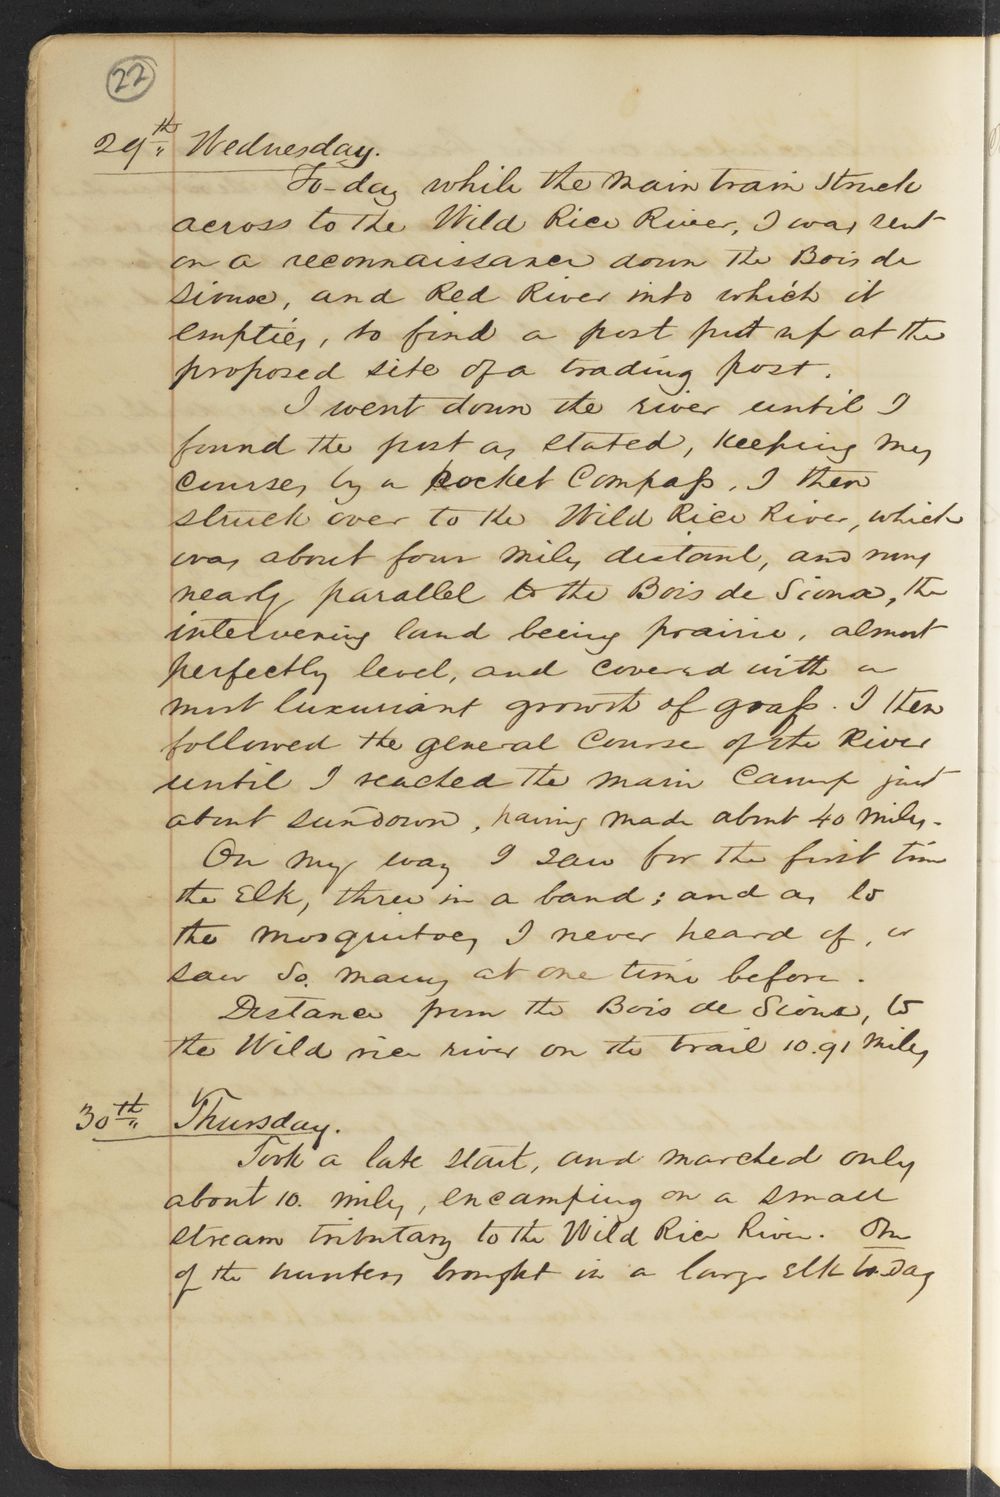 22
29th Wednesday.
To-day while the main train struck
across to the Wild Rice River, I was sent
on a reconnaissance down the Bois de
Sioux, and Red River into which it
empties, to find a post put up at the
proposed site of a trading post.
I went down the river until I
found the post as stated, keeping my
courses by a pocket Compass. I then
struck over to the Wild Rice River, which
was about four miles distant, and runs
nearly parallel to the Bois de Sioux, the
intervening land being prairie, almost
perfectly level, and covered with a
most luxuriant growth of grass. I then
followed the general course of the River
until I reached the main Camp just
about sundown, having made about 40 miles.
On my way I saw for the first time
the Elk, three in a band; and as to
the mosquitoes I never heard of, or
saw so many at one time before.
Distance from the Bois de Sioux, to
the Wild rice river on the trail 10.91 miles
30th Thursday.
Took a late start, and marched only
about 10. miles, encamping on a small
stream tributary to the Wild Rice River. One
of the hunters brought in a large Elk to-day